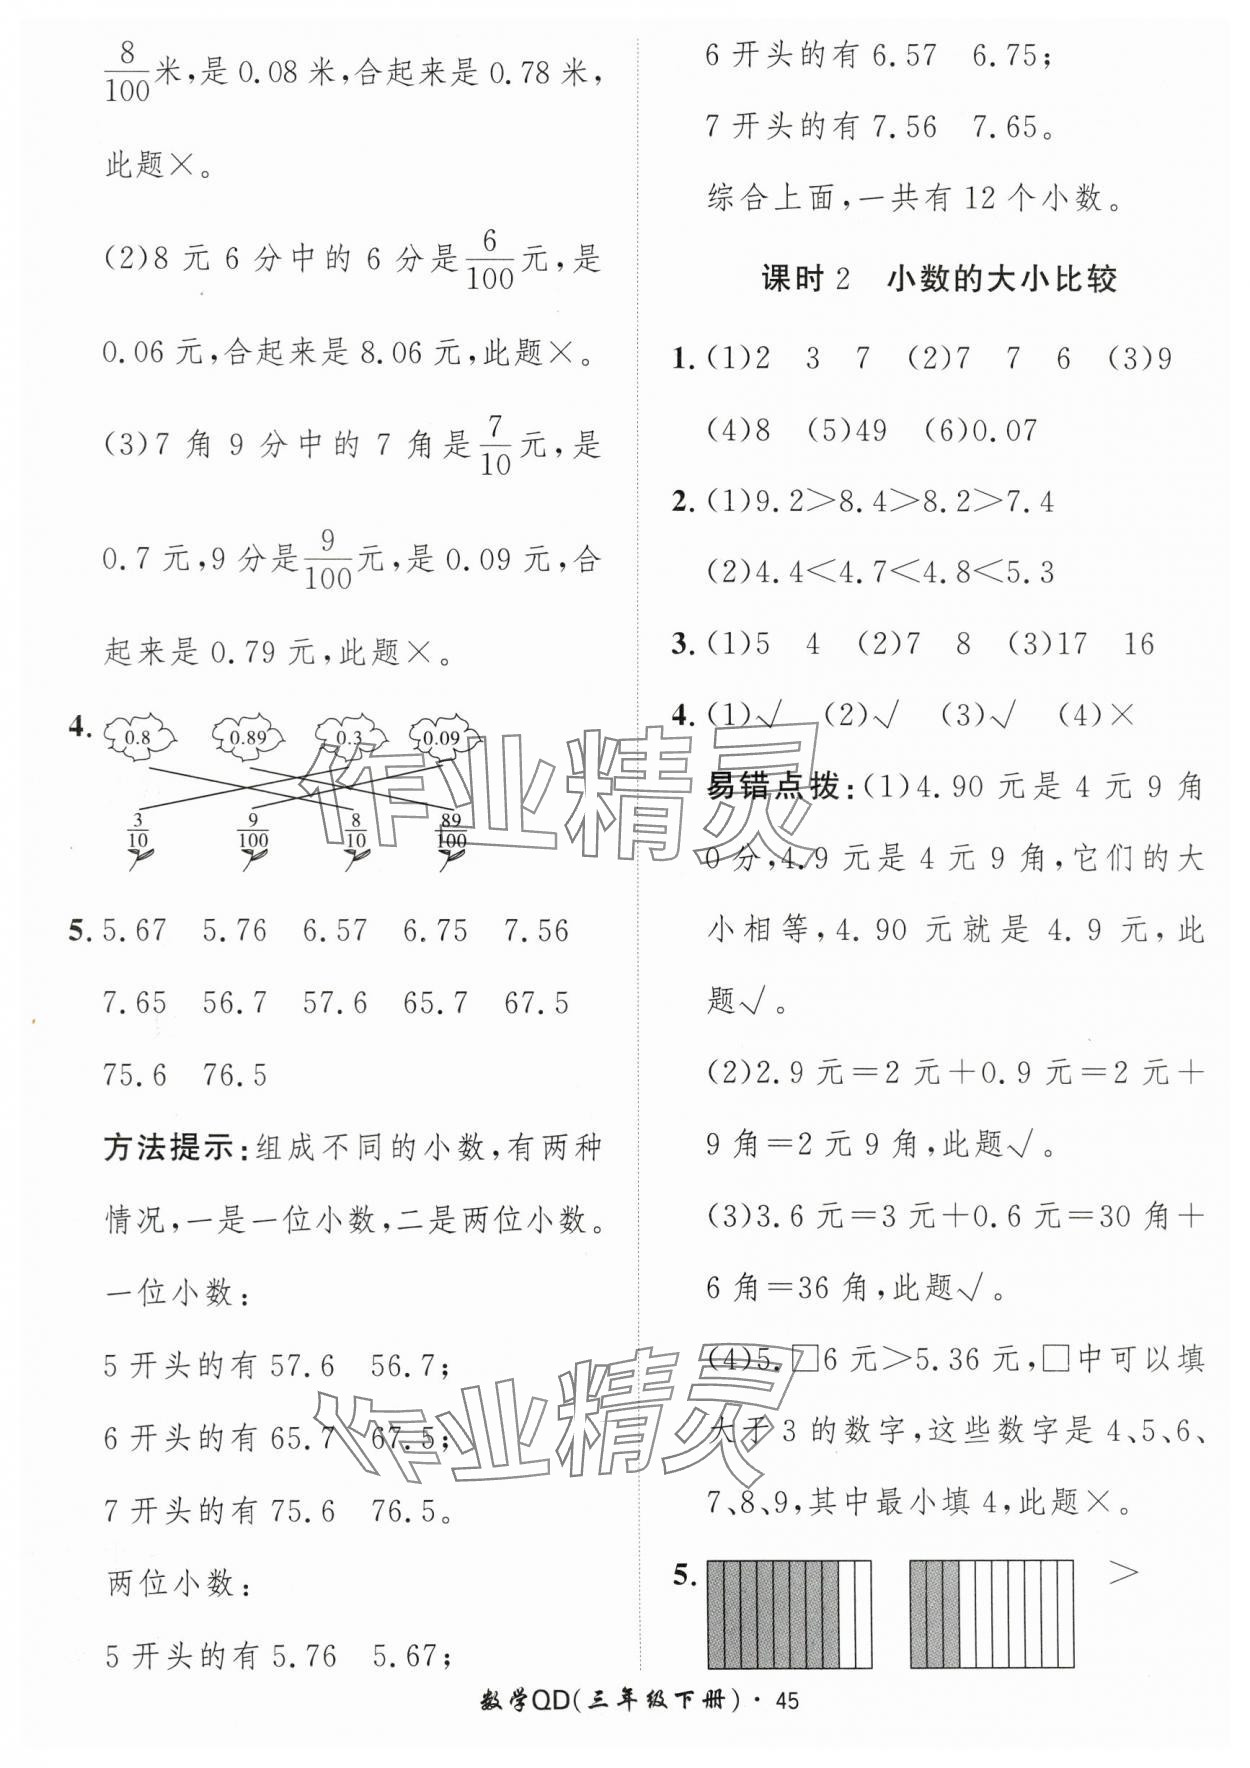 8/100米,是0.08米,合起来是0.78米,
此题×。
(2)8元6分中的6分是6/100元,是
0.06元,合起来是8.06元,此题×。
(3)7角9分中的7角是7/10元,是
0.7元,9分是9/100元,是0.09元,合
起来是0.79元,此题×。
4. 0.8 0.89 0.3 0.09
3/10 9/100 8/10 89/100
5. 5.67 5.76 6.57 6.75 7.56
7.65 56.7 57.6 65.7 67.5
75.6 76.5
方法提示:组成不同的小数,有两种
情况,一是一位小数,二是两位小数。
一位小数:
5开头的有57.6 56.7;
6开头的有65.7 67.5;
7开头的有75.6 76.5。
两位小数:
5开头的有5.76 5.67;
6开头的有6.57 6.75;
7开头的有7.56 7.65。
综合上面,一共有12个小数。
课时2 小数的大小比较
1. (1)2 3 7 (2)7 7 6 (3)9
(4)8 (5)49 (6)0.07
2. (1)9.2>8.4>8.2>7.4
(2)4.4<4.7<4.8<5.3
3. (1)5 4 (2)7 8 (3)17 16
4. (1)√ (2)√ (3)√ (4)×
易错点拨:(1)4.90元是4元9角
0分,4.9元是4元9角,它们的大
小相等,4.90元就是4.9元,此
题√。
(2)2.9元=2元+0.9元=2元+
9角=2元9角,此题√。
(3)3.6元=3元+0.6元=30角+
6角=36角,此题√。
(4)5.□6元>5.36元,□中可以填
大于3的数字,这些数字是4、5、6、
7、8、9,其中最小填4,此题×。
5. >
数学QD(三年级下册)·45
作业精灵
作业精灵